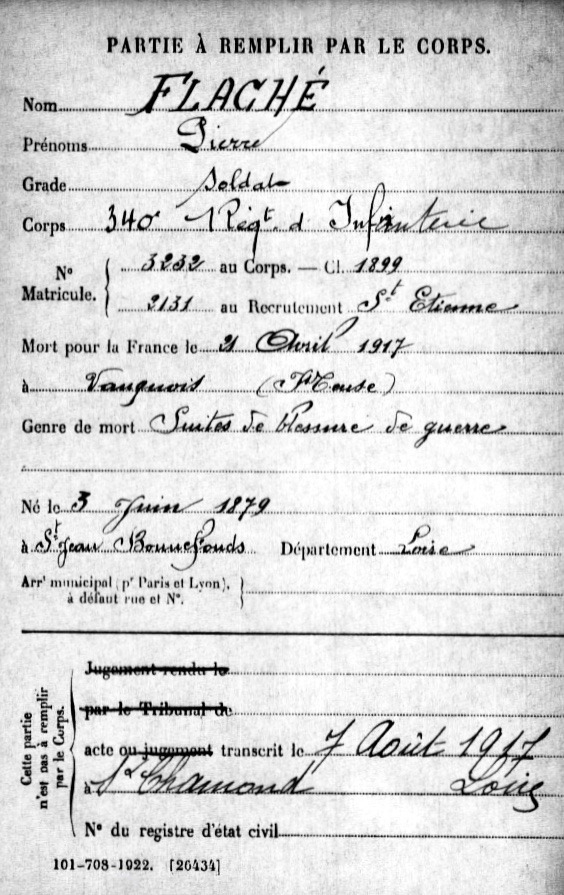 PARTIE À REMPLIR PAR LE CORPS.
Nom FLACHÉ
Prénoms Pierre
Grade Soldat
Corps 340e Régt. d'Infanterie
N° Matricule. 3232 au Corps. — Cl. 1899
2131 au Recrutement St Etienne
Mort pour la France le 21 Avril 1917
à Vauquois (Meuse)
Genre de mort Suites de blessure de guerre
Né le 3 Juin 1879
à St Jean Bonnefonds Département Loire
Arrt municipal (pr Paris et Lyon),
à défaut rue et N°.
Cette partie n'est pas à remplir par le Corps.
Jugement rendu le
par le Tribunal de
acte ou jugement transcrit le 7 Août 1917
à St Chamond Loire
N° du registre d'état civil
101-708-1922. [26434]